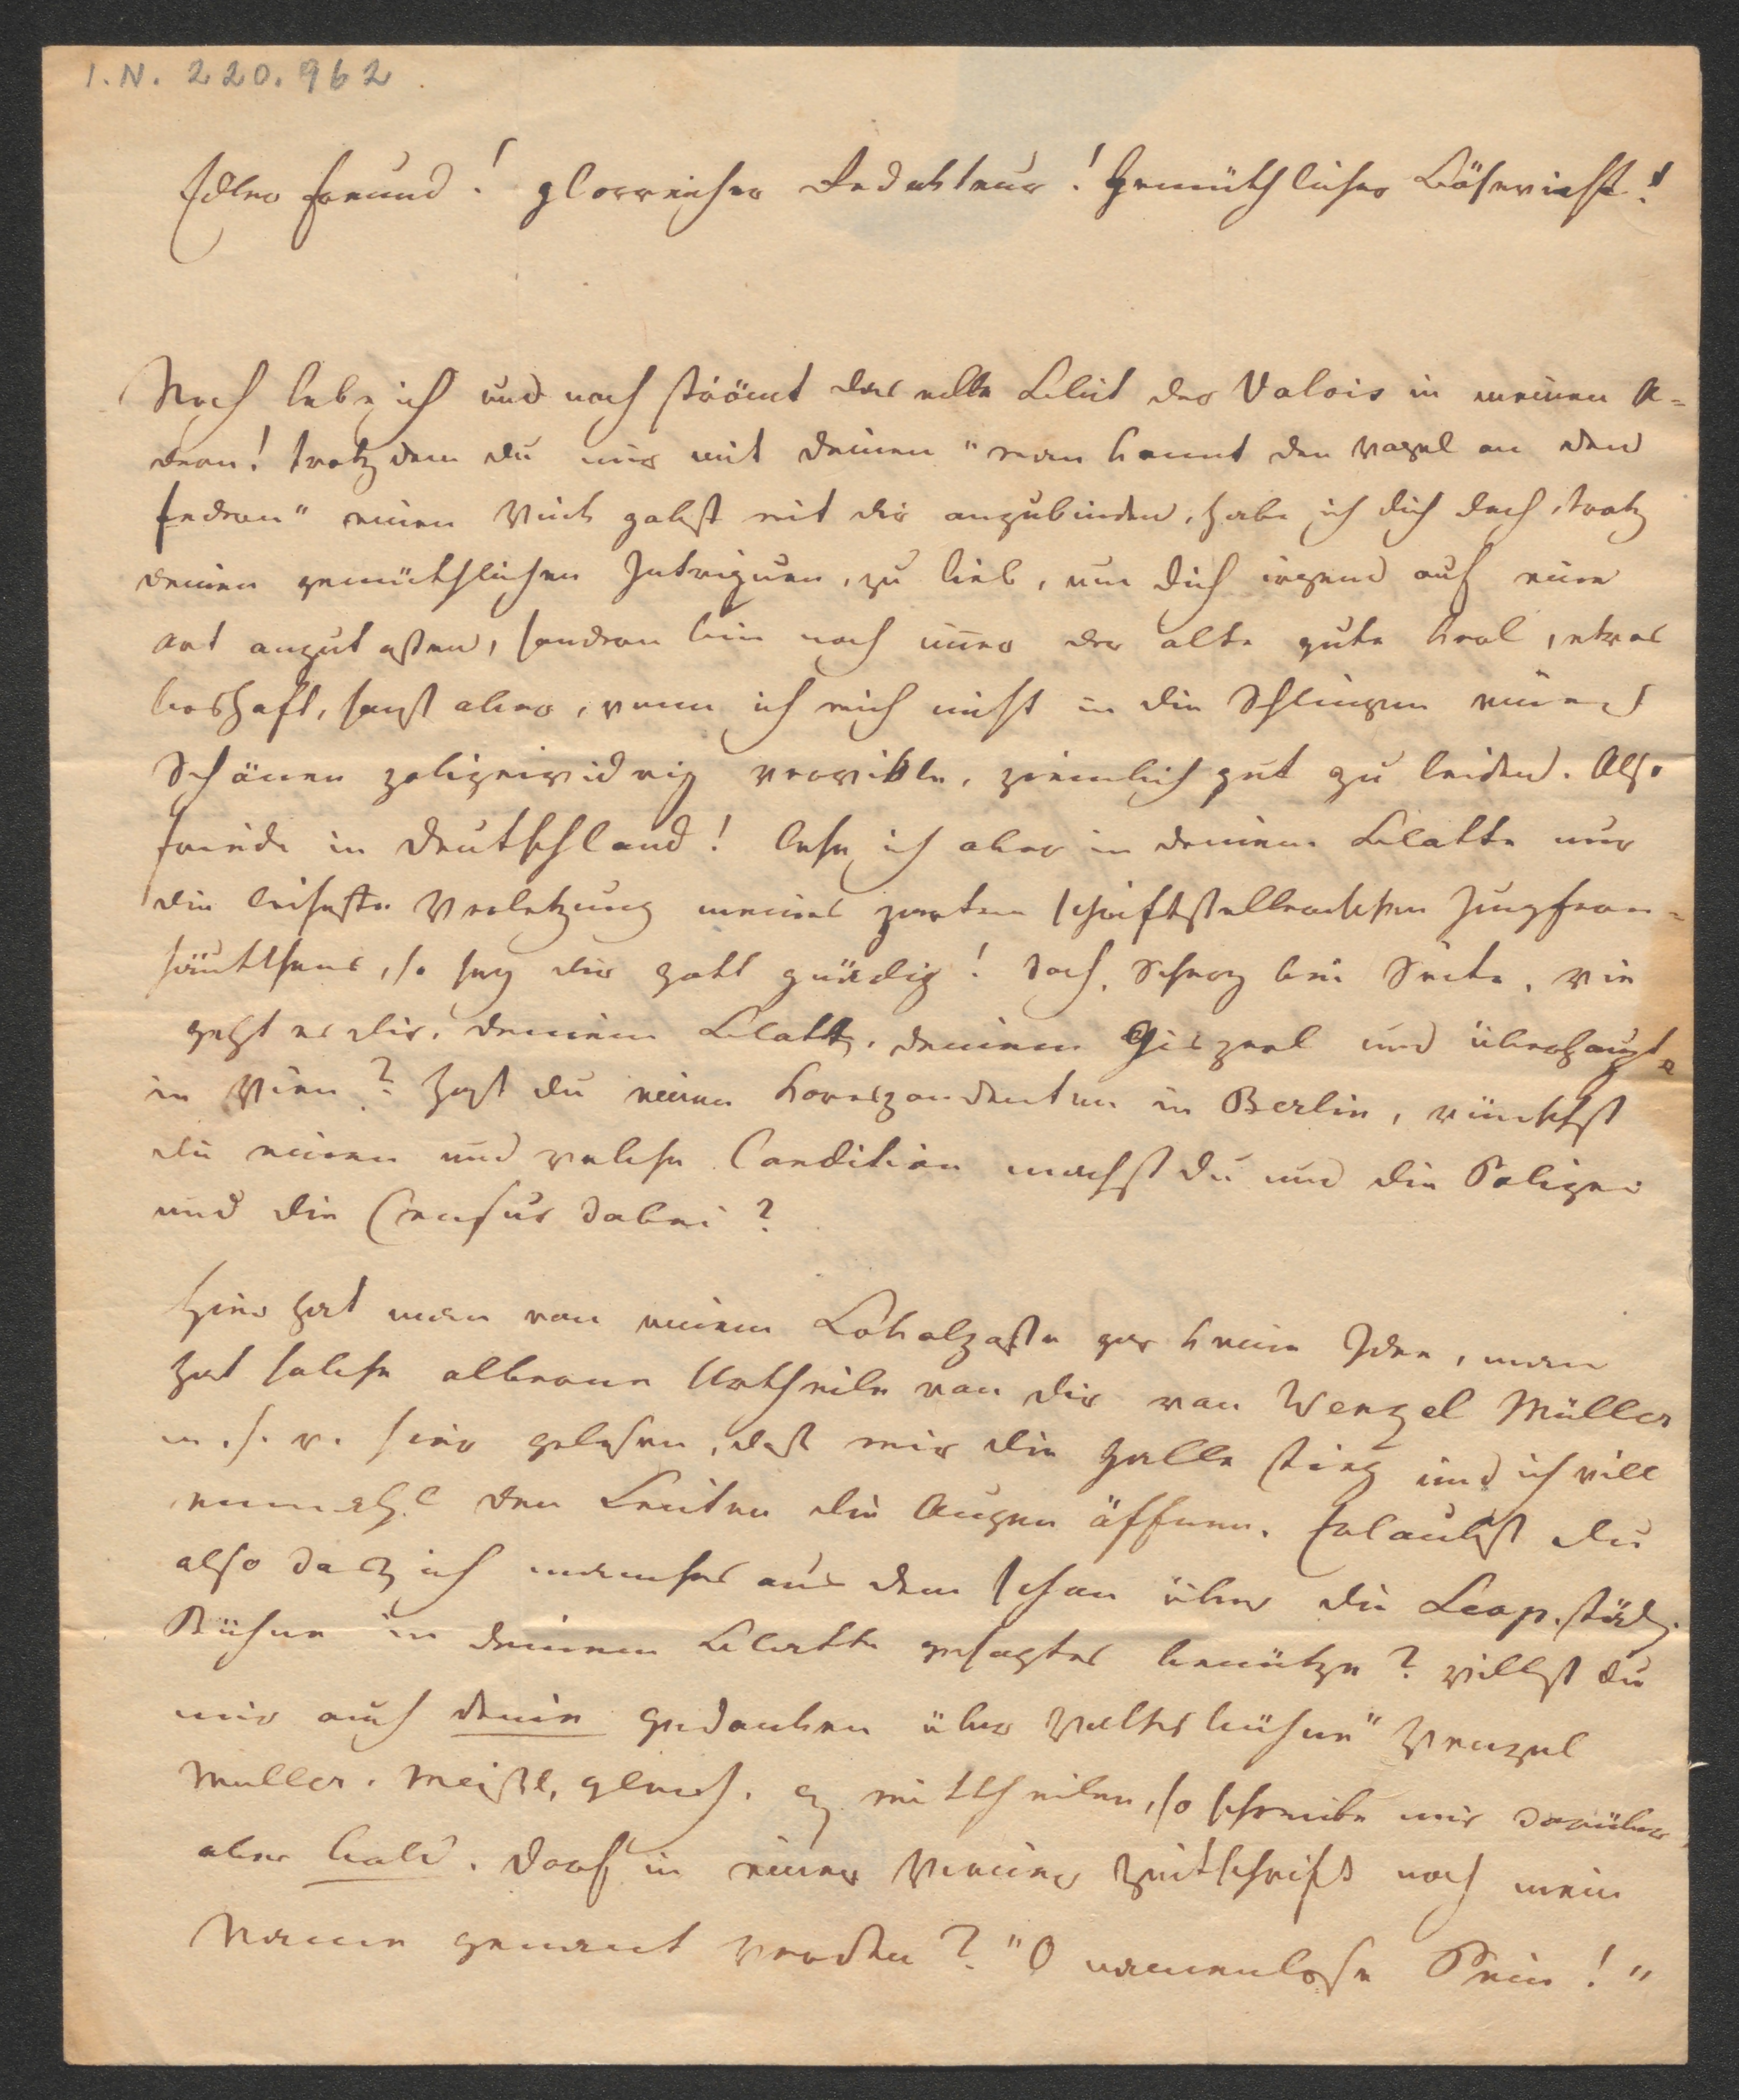 I.N. 220.962
Edler Freund! glorreicher Redakteur! Gemüthlicher Bösewicht!
Noch lebe ich und noch strömt das edle Blut der Valois in meinen A-
dern! trotzdem du mir mit deinen "man kennt den Vogel an den
Federn" einen Wink gabst mit dir anzubinden, habe ich dich doch, trotz
deinen gemüthlichen Intriguen, zu lieb, um dich irgend auf eine
Art anzutasten, sondern bin noch imer der alte gute Kerl, etwas
boshaft, sonst aber, wenn ich mich nicht in die Schlingen eines
Schönen polizeiwidrig verwikle, ziemlich gut zu leiden. Also
Friede in Deutschland! lese ich aber in deinem Blatte nur
die leiseste Verletzung meines zarten schriftstellerischen Jungfern-
häutchens, so sey dir Gott gnädig! Doch, Scherz bei Seite, wie
geht es dir, deinem Blatt, deinem und überhaupt
in Wien? Hast du einen Korrespondenten in Berlin, wünschst
du einen und welche Condition machst du und die Polizei
und die Censur dabei?
Hier hat man von einem Lokalposse gar keine Idee, man
hat solche alberne Urtheile von dir von Wenzel Müller
u. s. w. hier gelesen, daß mir die Galle stieg und ich will
einmahl den Leuten die Augen öffnen. Erlaubst du
also daß ich manches aus dem schon über die Leop.städ.
Bühne in deinem Blatte gesagtes benütze? willst du
mir auch deine Gedanken über Volksbühne" Wenzel
Müller, Meisl, Gleich. mittheilen, so schreibe mir darüber,
aber bald. Darf in einer Wiener Zeitschrift noch mein
Name genannt werden? "O namenlose Pein!"